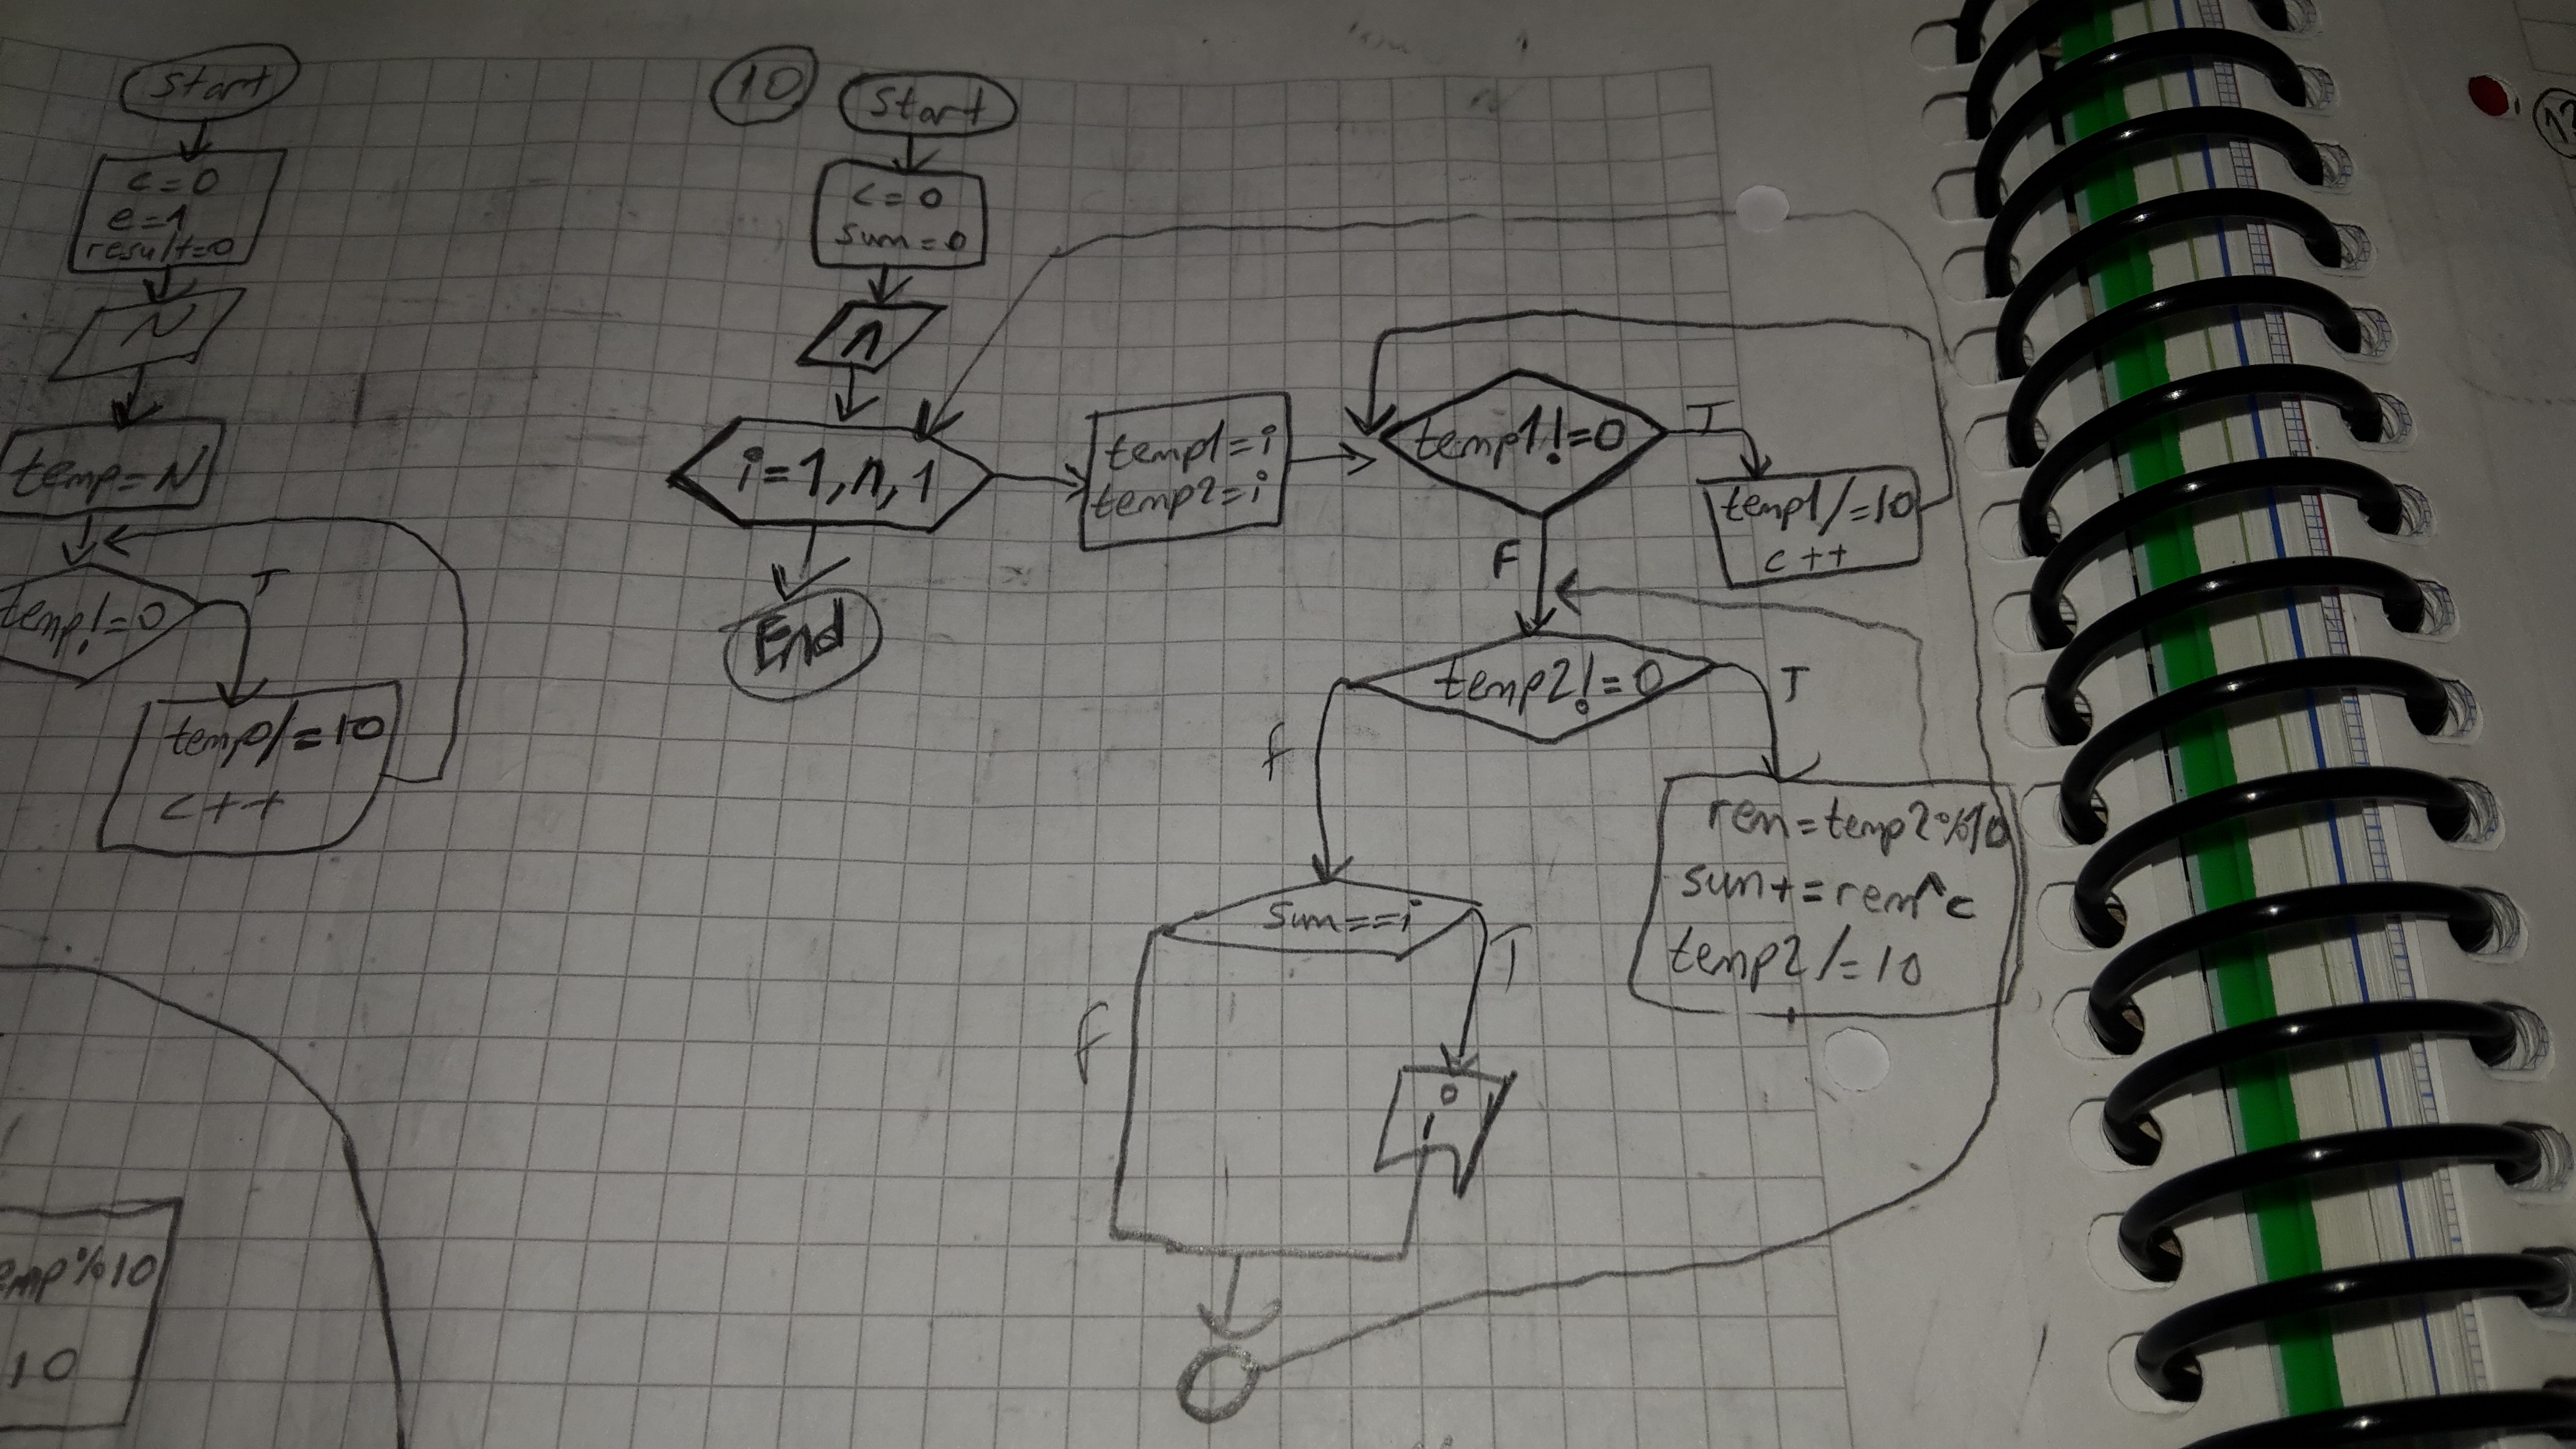 start
c=0
e=1
result=0
N
temp=N
temp!=0
T
temp/=10
c++
emp%10
10
10
start
c=0
sum=0
n
i=1,n,1
End
temp1=i
temp2=i
temp1!=0
T
temp1/=10
c++
F
temp2!=0
T
F
rem=temp2%10
sum+=rem^c
temp2/=10
sum==i
T
F
i